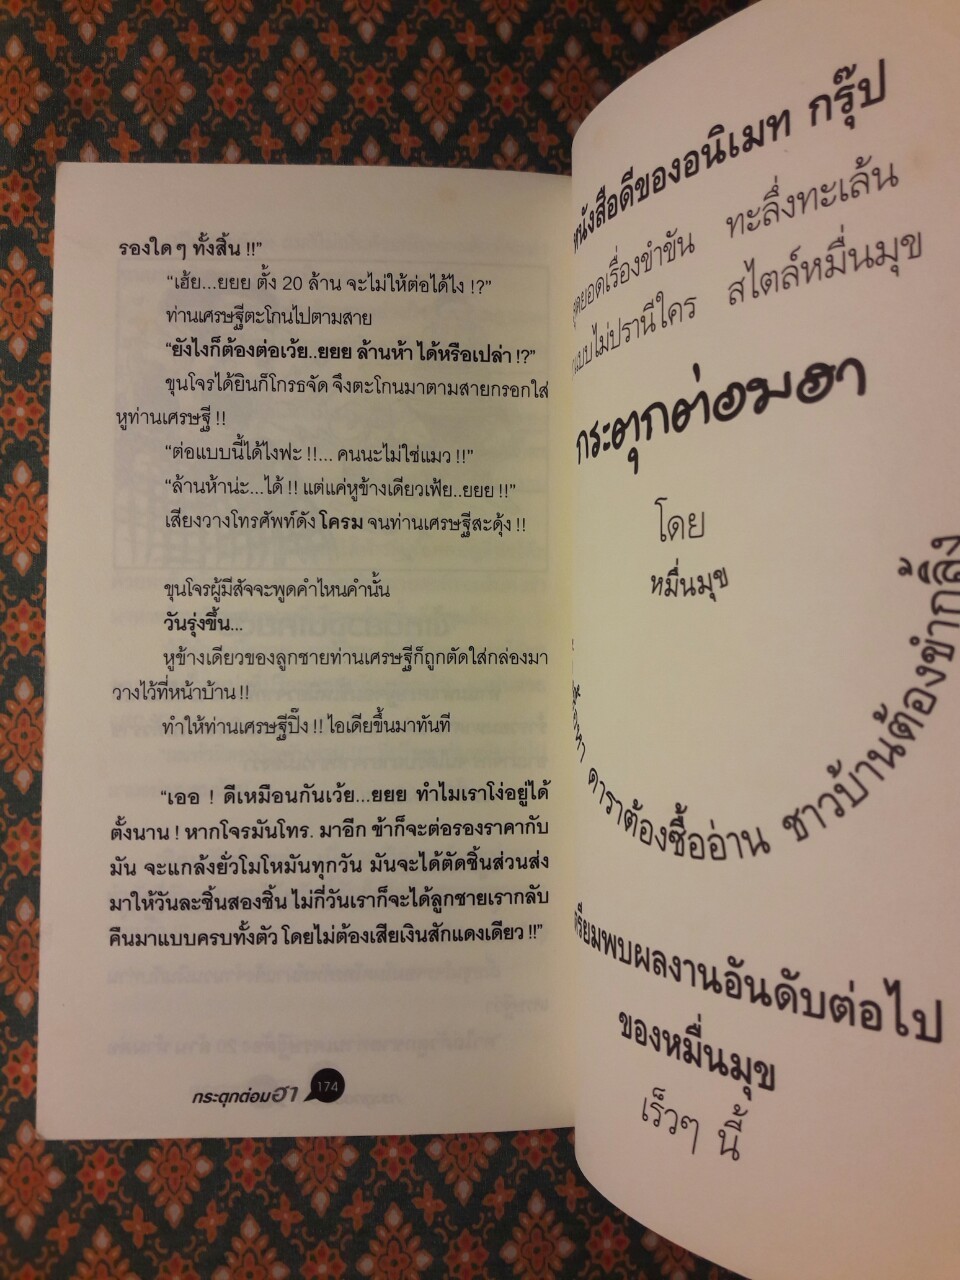 รองใด ๆ ทั้งสิ้น !!”
“เฮ้ย...ยยย ตั้ง 20 ล้าน จะไม่ให้ต่อได้ไง !?”
ท่านเศรษฐีตะโกนไปตามสาย
“ยังไงก็ต้องต่อเว้ย..ยยย ล้านห้า ได้หรือเปล่า !?”
ขุนโจรได้ยินก็โกรธจัด จึงตะโกนมาตามสายกรอกใส่
หูท่านเศรษฐี !!
“ต่อแบบนี้ได้ไงฟะ !!... คนนะไม่ใช่แมว !!”
“ล้านห้าน่ะ...ได้ !! แต่แค่หูข้างเดียวเฟ้ย..ยยย !!”
เสียงวางโทรศัพท์ดัง โครม จนท่านเศรษฐีสะดุ้ง !!
ขุนโจรผู้มีสัจจะพูดคำไหนคำนั้น
วันรุ่งขึ้น...
หูข้างเดียวของลูกชายท่านเศรษฐีก็ถูกตัดใส่กล่องมา
วางไว้ที่หน้าบ้าน !!
ทำให้ท่านเศรษฐีปิ๊ง !! ไอเดียขึ้นมาทันที
“เออ ! ดีเหมือนกันเว้ย...ยยย ทำไมเราโง่อยู่ได้
ตั้งนาน ! หากโจรมันโทร. มาอีก ข้าก็จะต่อรองราคากับ
มัน จะแกล้งยั่วโมโหมันทุกวัน มันจะได้ตัดชิ้นส่วนส่ง
มาให้วันละชิ้นสองชิ้น ไม่กี่วันเราก็จะได้ลูกชายเรากลับ
คืนมาแบบครบทั้งตัว โดยไม่ต้องเสียเงินสักแดงเดียว !!”
กระตุกต่อมฮา 174
หนังสือดีของอนิเมท กรุ๊ป
สุดยอดเรื่องขำขัน ทะลึ่งทะเล้น
แบบไม่ปรานีใคร สไตล์หมื่นมุข
กระตุกต่อมฮา
โดย
หมื่นมุข
ดาราต้องซื้ออ่าน ชาวบ้านต้องขำกลิ้ง
เตรียมพบผลงานอันดับต่อไป
ของหมื่นมุข
เร็วๆ นี้